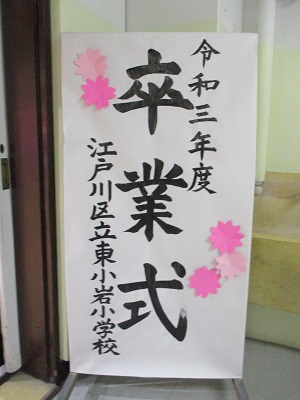 令和三年度
卒業式
江戸川区立東小岩小学校